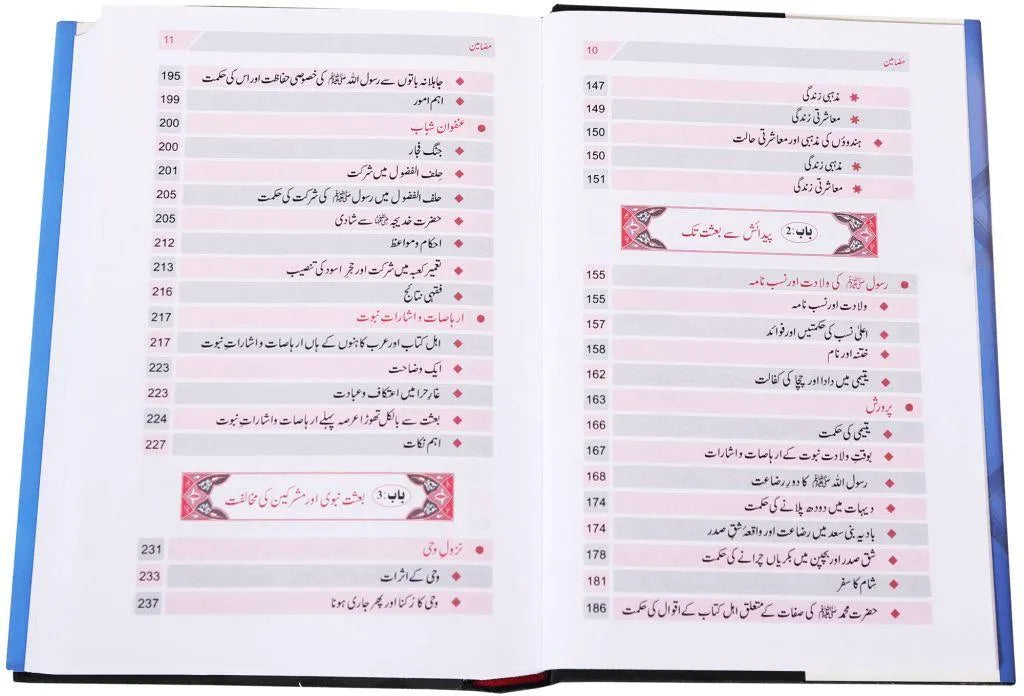 مضامین 10
مذہبی زندگی 147
معاشرتی زندگی 149
ہندوؤں کی مذہبی اور معاشرتی حالت 150
مذہبی زندگی 150
معاشرتی زندگی 151
باب:2 پیدائش سے بعثت تک
رسول ﷺ کی ولادت اور نسب نامہ 155
ولادت اور نسب نامہ 155
اعلیٰ نسب کی حکمتیں اور فوائد 157
ختنہ اور نام 158
یتیمی میں دادا اور چچا کی کفالت 162
پرورش 163
یتیمی کی حکمت 166
بوقتِ ولادت نبوت کے ارہاصات و اشارات 167
رسول اللہ ﷺ کا دورِ رضاعت 168
دیہات میں دودھ پلانے کی حکمت 174
بادیہ بنی سعد میں رضاعت اور واقعۂ شقِ صدر 174
شق صدر اور بچپن میں بکریاں چرانے کی حکمت 178
شام کا سفر 181
حضرت محمد ﷺ کی صفات کے متعلق اہل کتاب کے اقوال کی حکمت 186
مضامین 11
جاہلانہ باتوں سے رسول اللہ ﷺ کی خصوصی حفاظت اور اس کی حکمت 195
اہم امور 199
عنفوان شباب 200
جنگ فجار 200
حلف الفضول میں شرکت 201
حلف الفضول میں رسول ﷺ کی شرکت کی حکمت 205
حضرت خدیجہ رضی اللہ عنہا سے شادی 205
احکام و مواعظ 212
تعمیر کعبہ میں شرکت اور حجرِ اسود کی تنصیب 213
فقہی نتائج 216
ارہاصات و اشاراتِ نبوت 217
اہل کتاب اور عرب کاہنوں کے ہاں ارہاصات و اشاراتِ نبوت 217
ایک وضاحت 223
غارِ حرا میں اعتکاف و عبادت 223
بعثت سے بالکل تھوڑا عرصہ پہلے ارہاصات و اشاراتِ نبوت 224
اہم نکات 227
باب:3 بعثت نبوی اور مشرکین کی مخالفت
نزول وحی 231
وحی کے اثرات 233
وحی کا رُکنا اور پھر جاری ہونا 237